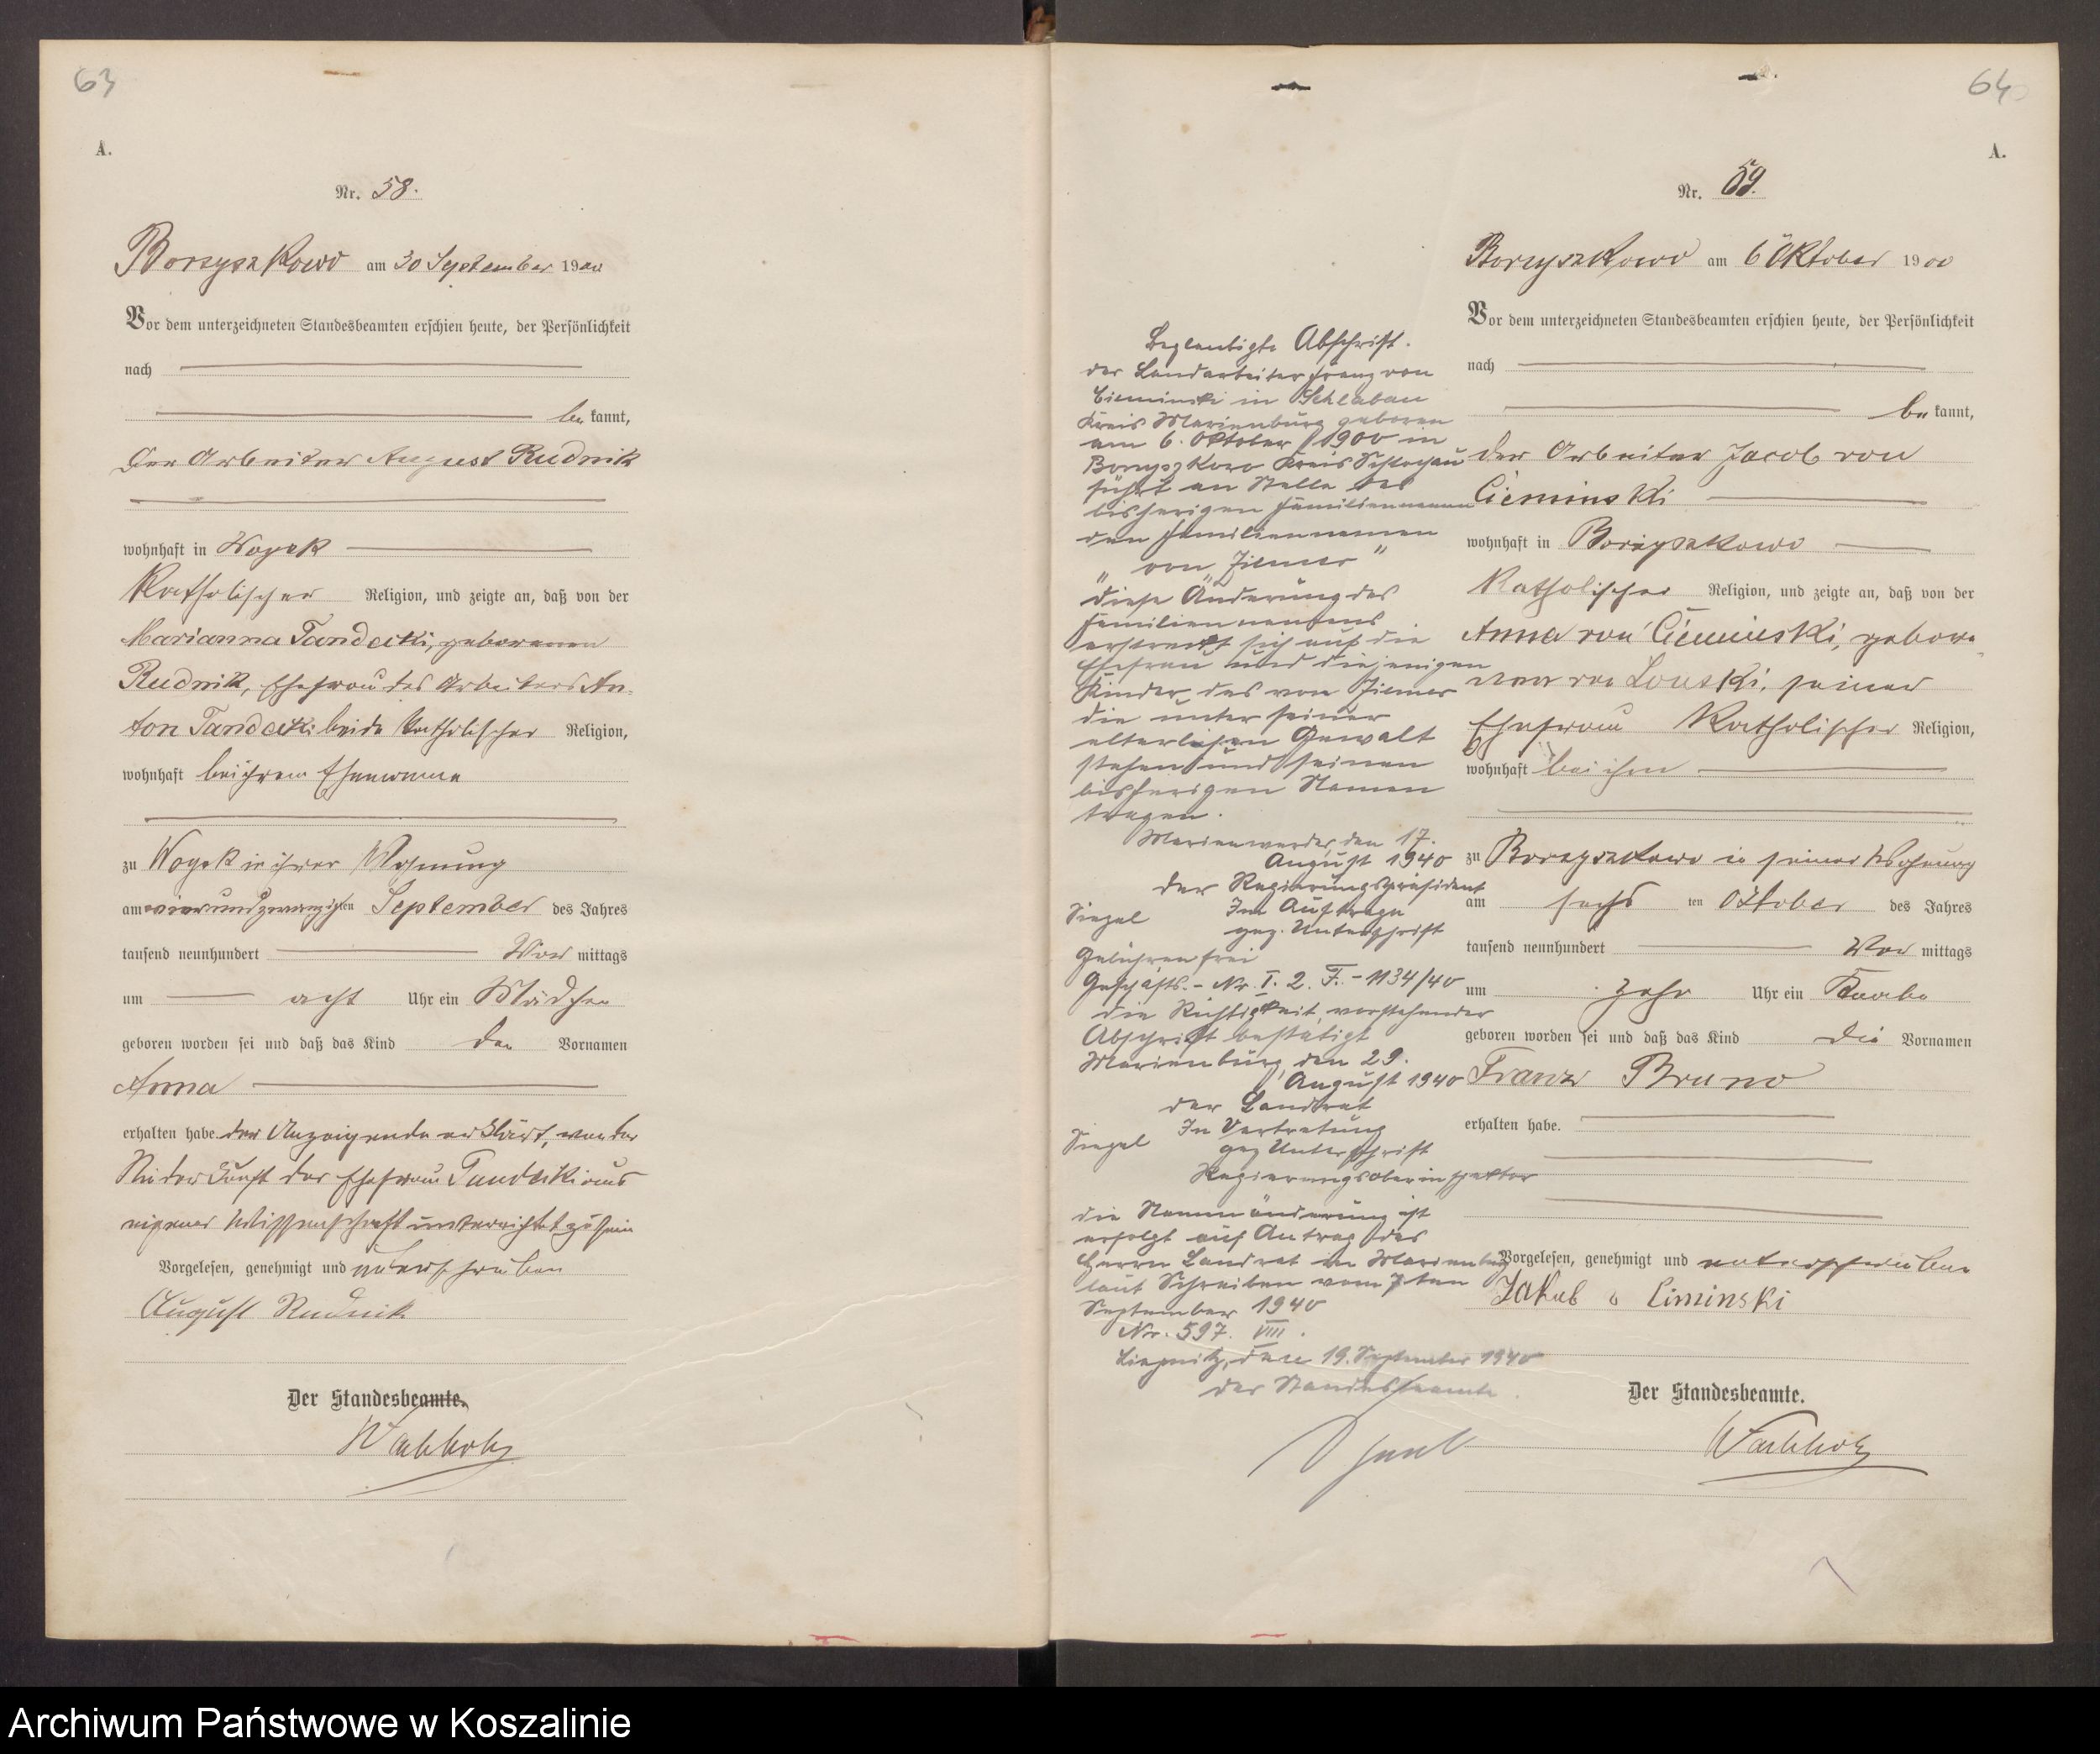 63
A.
Nr. 58.
Borzyszkowo am 30 September 1900
Vor dem unterzeichneten Standesbeamten erschien heute, der Persönlichkeit
nach
be kannt,
der Arbeiter August Rudnik
wohnhaft in
Katholischer Religion, und zeigte an, daß von der
Marianna geborenen
Rudnik, Ehefrau des Arbeiters An-
ton beide katholischer Religion,
wohnhaft bei ihrem Ehemanne
zu in ihrer Wohnung
am vierundzwanzigsten September des Jahres
tausend neunhundert Vor mittags
um acht Uhr ein Mädchen
geboren worden sei und daß das Kind den Vornamen
Anna
erhalten habe. der Anzeigende erklärt, von der
Niederkunft der Ehefrau aus
eigener Wissenschaft unterrichtet zu sein
Vorgelesen, genehmigt und unterschrieben
August Rudnik
Der Standesbeamte.
64
A.
Nr. 59.
Borzyszkowo am 6 Oktober 1900
Vor dem unterzeichneten Standesbeamten erschien heute, der Persönlichkeit
nach
be kannt,
der Arbeiter Jacob von
Cieminski
wohnhaft in Borzyszkowo
Katholischer Religion, und zeigte an, daß von der
Anna von Cieminski, gebore-
nen von seiner
Ehefrau Katholischer Religion,
wohnhaft bei ihm
zu Borzyszkowo in seiner Wohnung
am sechs ten Oktober des Jahres
tausend neunhundert Vor mittags
um zehn Uhr ein Knabe
geboren worden sei und daß das Kind die Vornamen
Franz Bruno
erhalten habe.
Vorgelesen, genehmigt und unterschrieben
Jakub v Ciminski
Der Standesbeamte.
Beglaubigte Abschrift.
der Landarbeiter Franz von
Cieminski in
Kreis Marienburg geboren
am 6. Oktober 1900 in
Borzyszkowo Kreis Schlochau
führt an Stelle des
bisherigen Familiennamen
den Familiennamen
"von Ziemer"
diese Änderung des
Familiennamens
erstreckt sich auf die
Ehefrau und diejenigen
Kinder des von Ziemer
die unter seiner
elterlichen Gewalt
stehen und seinen
bisherigen Namen
tragen.
Marienwerder, den 17.
August 1940
Der Regierungspräsident
Siegel Im Auftrage
gez. Unterschrift
Gebührenfrei
Geschäfts.-Nr. I. 2. F.-1134/40
die Richtigkeit vorstehender
Abschrift bestätigt
Marienburg, den 29.
August 1940
der Landrat
Siegel In Vertretung
gez Unterschrift
Regierungsoberinspektor
die Namenänderung ist
erfolgt auf Antrag des
Herrn Landrat in Marienburg
laut Schreiben vom 7ten
September 1940
Nr. 597. VIII.
Liepnitz, den 19. September 1940
der Standesbeamte.
Archiwum Państwowe w Koszalinie